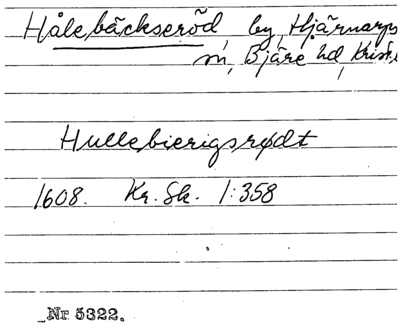 Hålebäckseröd, by, Hjärnarps
sn, Bjäre hd, Krist.
Hullebierigsrødt
1608. Kr. Sk. 1:358
Nr 5322.